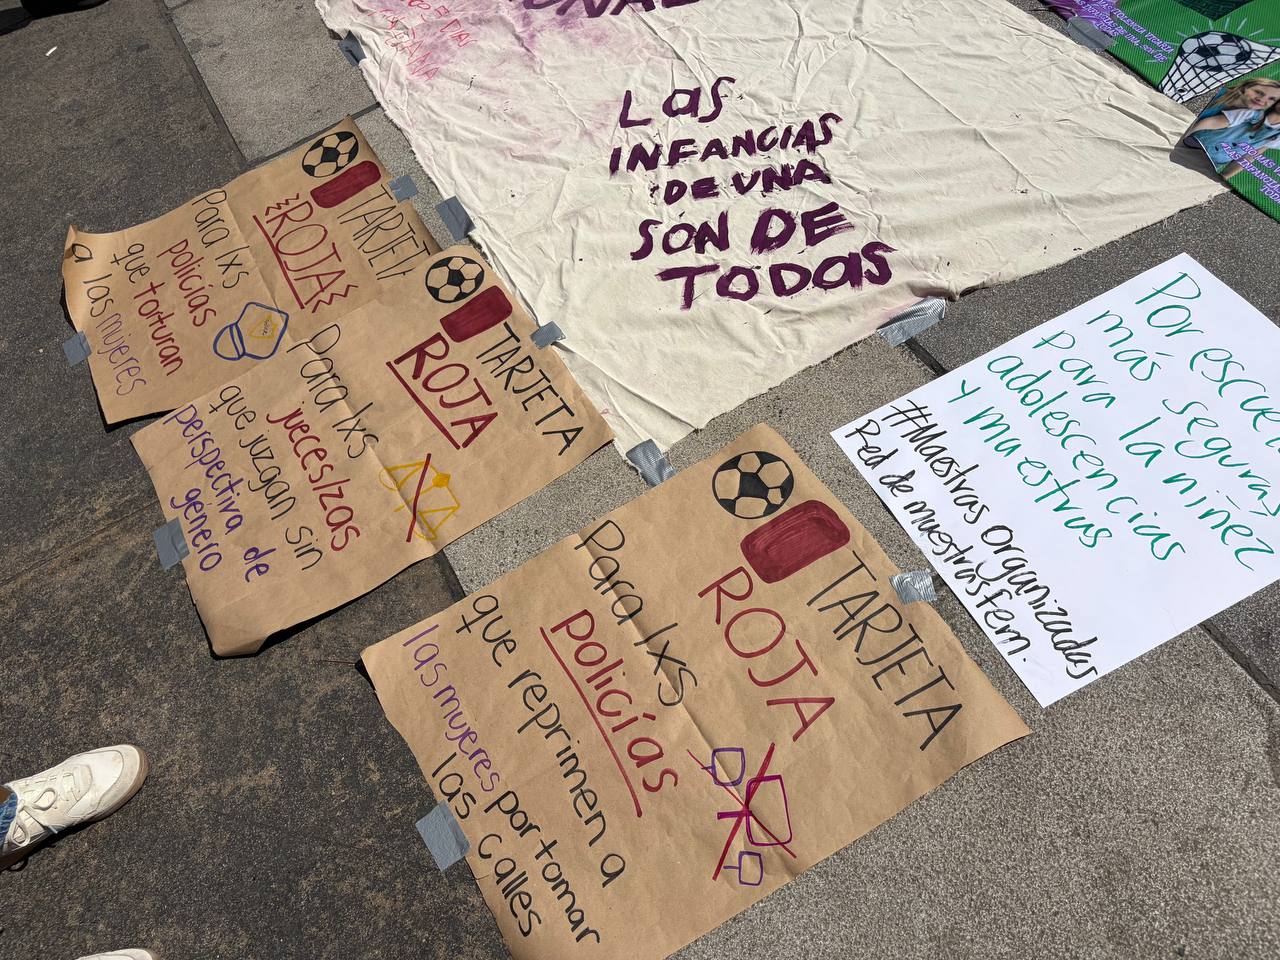 LaS
INFANCIAS
DE UNA
SON DE
TODaS
TARJETA
ROJA
Para lxs
policías
que torturan
a las mujeres
TARJETA
ROJA
Para lxs
jueces/zas
que juzgan sin
perspectiva de
género
TARJETA
ROJA
Para lxs
policías
que reprimen a
las mujeres por tomar
las calles
Por
más seguras
para la niñez
adolescencias
y maestras
#Maestras organizadas
Red de muestras fem.